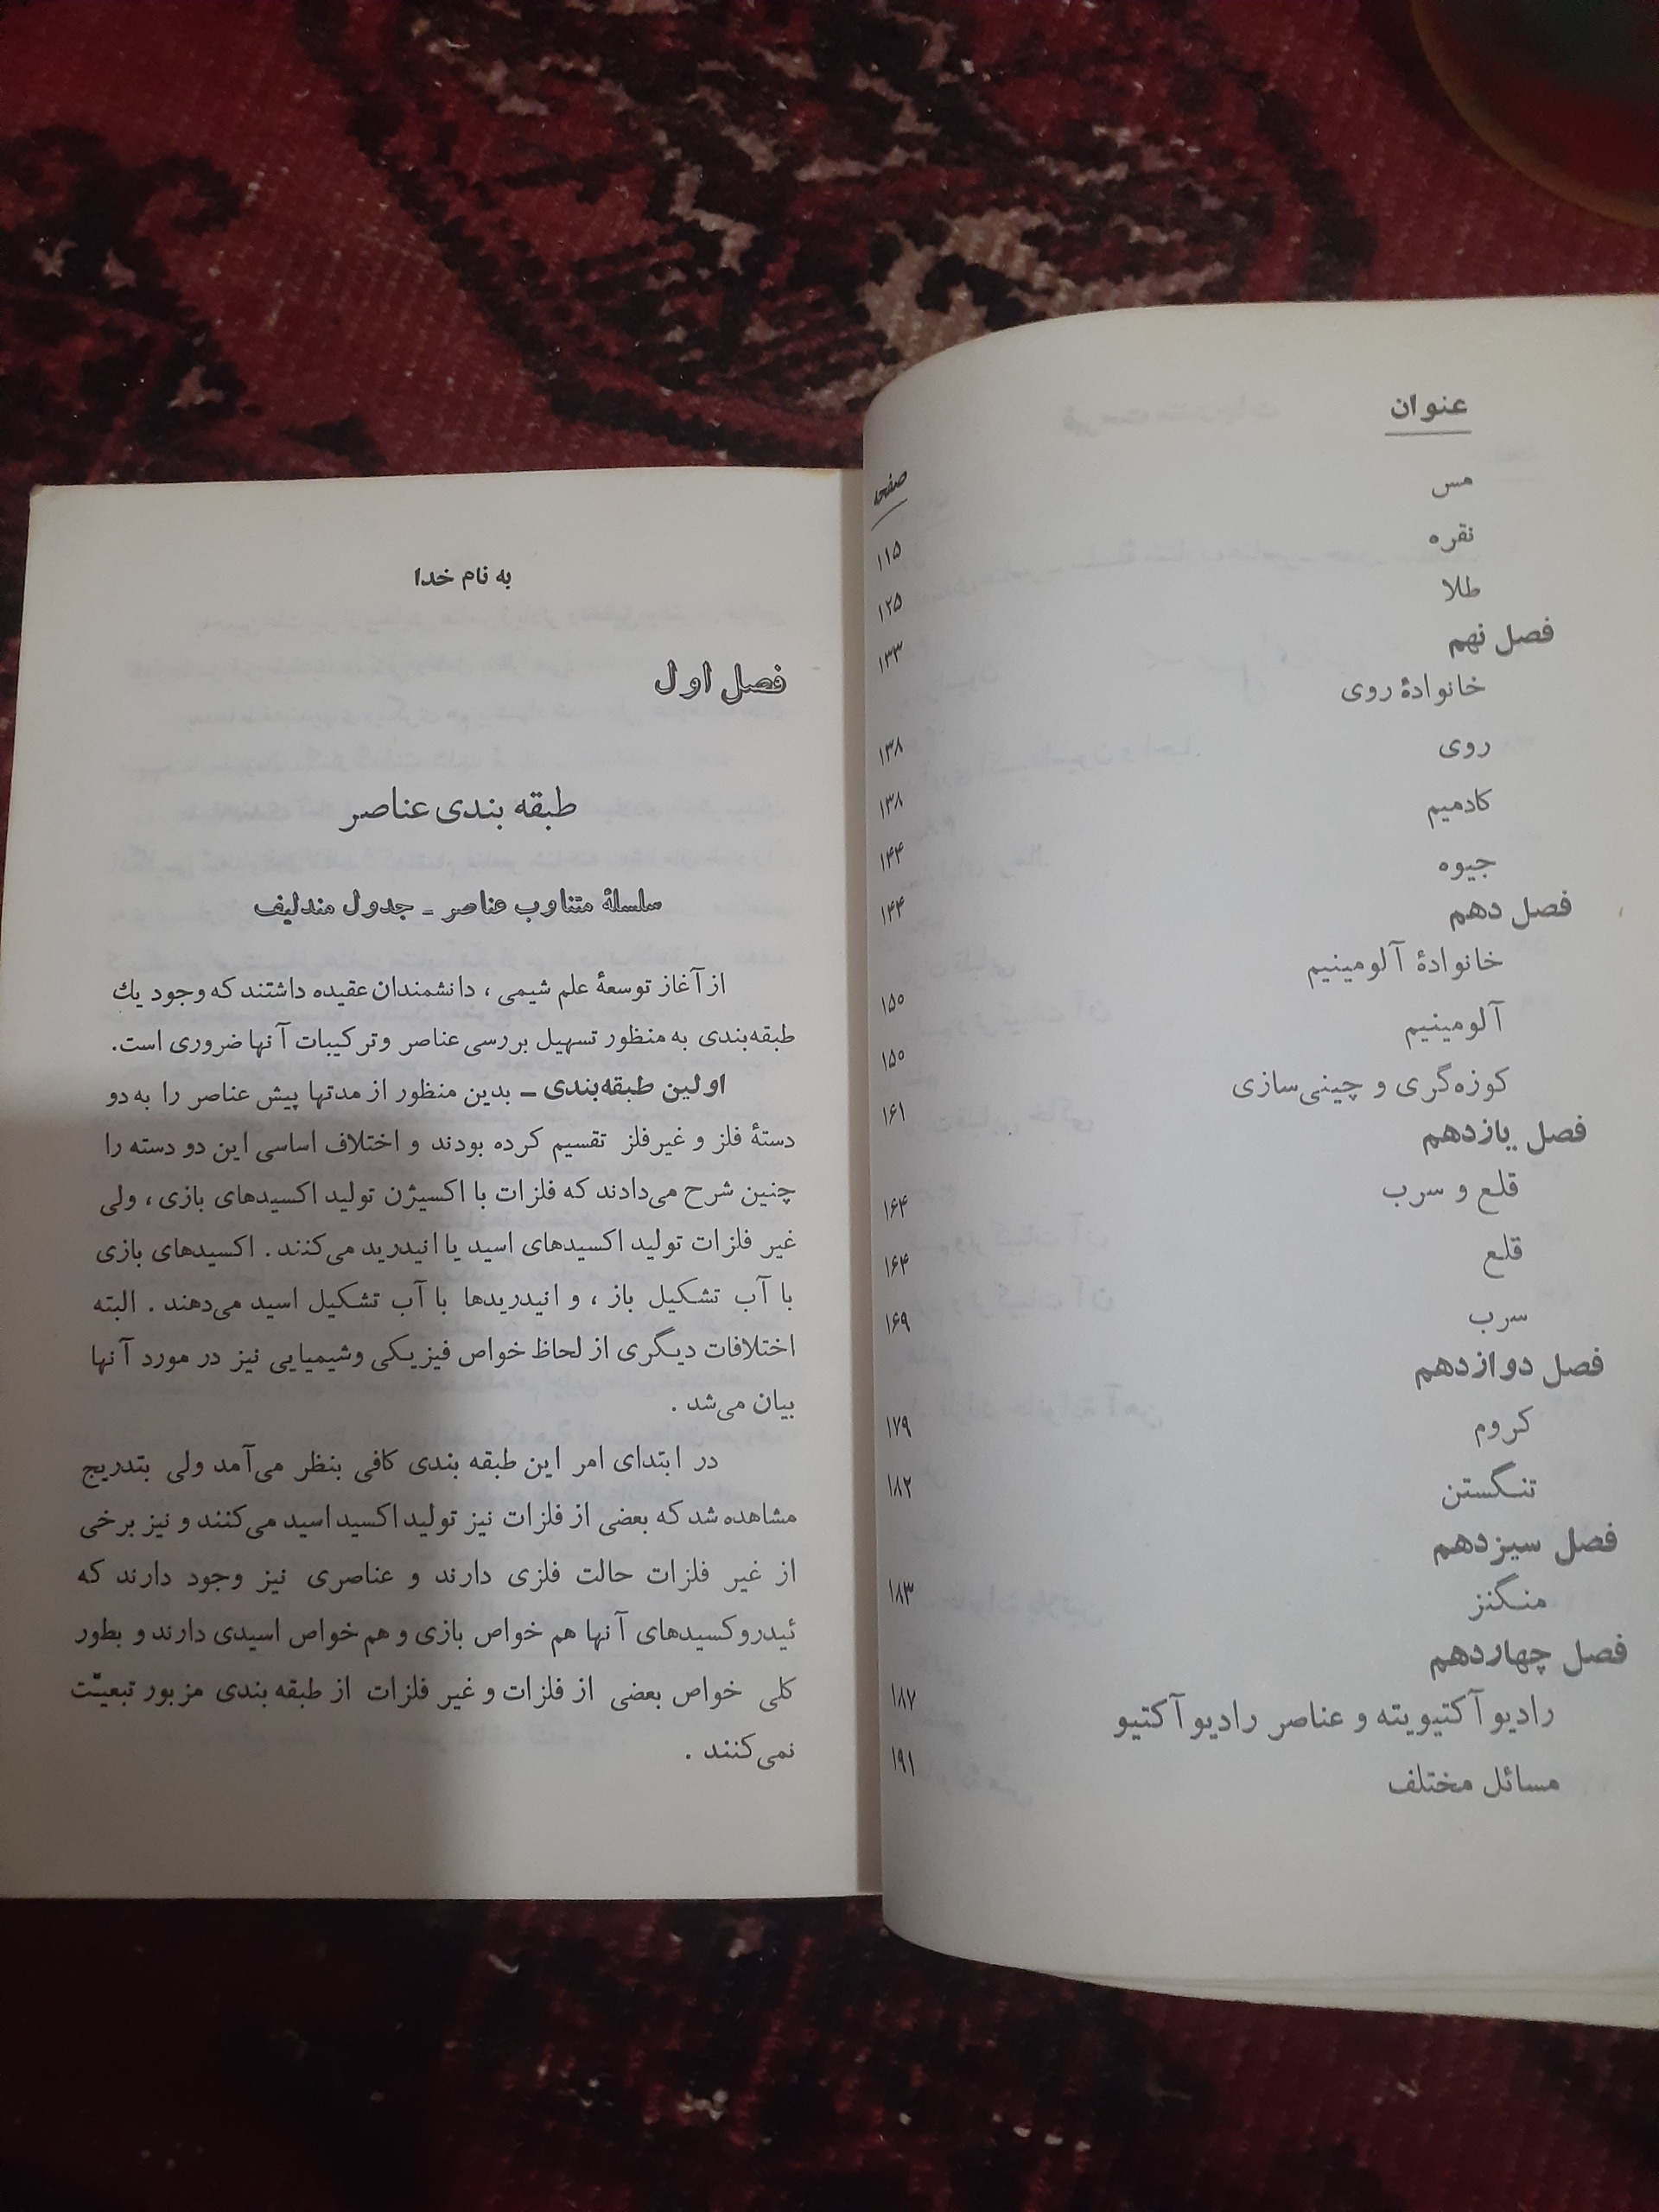 عنوان صفحه
مس ۱۱۵
نقره ۱۲۵
طلا ۱۳۳
فصل نهم
خانوادهٔ روی ۱۳۸
روی ۱۳۸
کادمیم ۱۴۴
جیوه ۱۴۴
فصل دهم
خانوادهٔ آلومینیم ۱۵۰
آلومینیم ۱۵۰
کوزه‌گری و چینی‌سازی ۱۶۱
فصل یازدهم
قلع و سرب ۱۶۴
قلع ۱۶۴
سرب ۱۶۹
فصل دوازدهم
کروم ۱۷۹
تنگستن ۱۸۲
فصل سیزدهم
منگنز ۱۸۳
فصل چهاردهم
رادیو آکتیویته و عناصر رادیو آکتیو ۱۸۷
مسائل مختلف ۱۹۱
به نام خدا
فصل اول
طبقه بندی عناصر
سلسلهٔ متناوب عناصر ـ جدول مندلیف
از آغاز توسعهٔ علم شیمی ، دانشمندان عقیده داشتند که وجود یك
طبقه‌بندی به منظور تسهیل بررسی عناصر و ترکیبات آنها ضروری است.
اولین طبقه‌بندی ـ بدین منظور از مدتها پیش عناصر را به دو
دستهٔ فلز و غیرفلز تقسیم کرده بودند و اختلاف اساسی این دو دسته را
چنین شرح می‌دادند که فلزات با اکسیژن تولید اکسیدهای بازی ، ولی
غیر فلزات تولید اکسیدهای اسید یا انیدرید می‌کنند . اکسیدهای بازی
با آب تشکیل باز ، و انیدریدها با آب تشکیل اسید می‌دهند . البته
اختلافات دیگری از لحاظ خواص فیزیکی وشیمیایی نیز در مورد آنها
بیان می‌شد .
در ابتدای امر این طبقه بندی کافی بنظر می‌آمد ولی بتدریج
مشاهده شد که بعضی از فلزات نیز تولید اکسید اسید می‌کنند و نیز برخی
از غیر فلزات حالت فلزی دارند و عناصری نیز وجود دارند که
ئیدروکسیدهای آنها هم خواص بازی و هم خواص اسیدی دارند و بطور
کلی خواص بعضی از فلزات و غیر فلزات از طبقه بندی مزبور تبعیّت
نمی‌کنند .